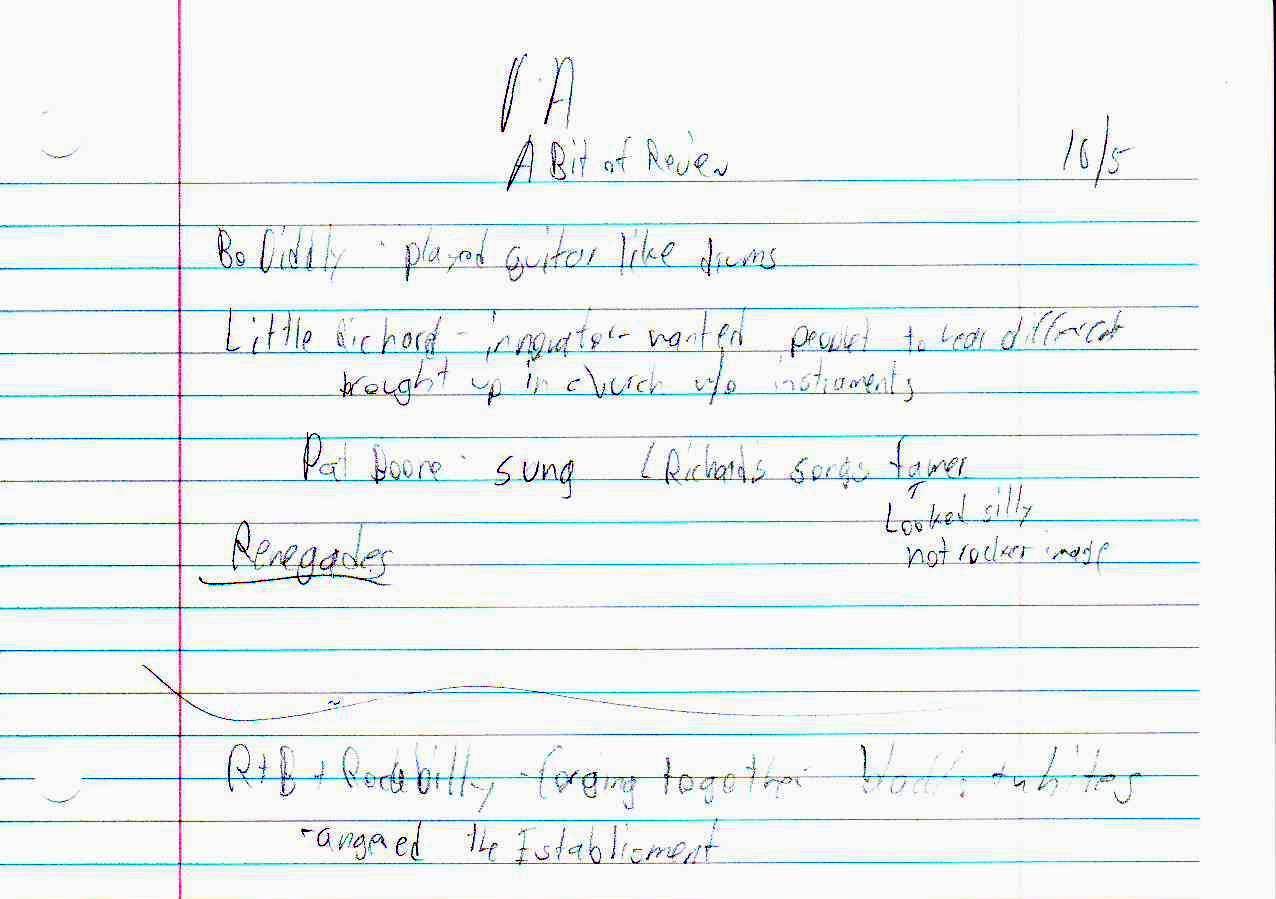 A Bit of Review
10/5
Bo Diddly - played guitar like drums
Little Richard - innovator - wanted people to hear different
brought up in church w/o instruments
Pat Boone - sung L Richards songs tamer
Looked silly
not rocker image
Renegades
R+B + Rockabilly - forging together blacks + whites
- angered the Establisment